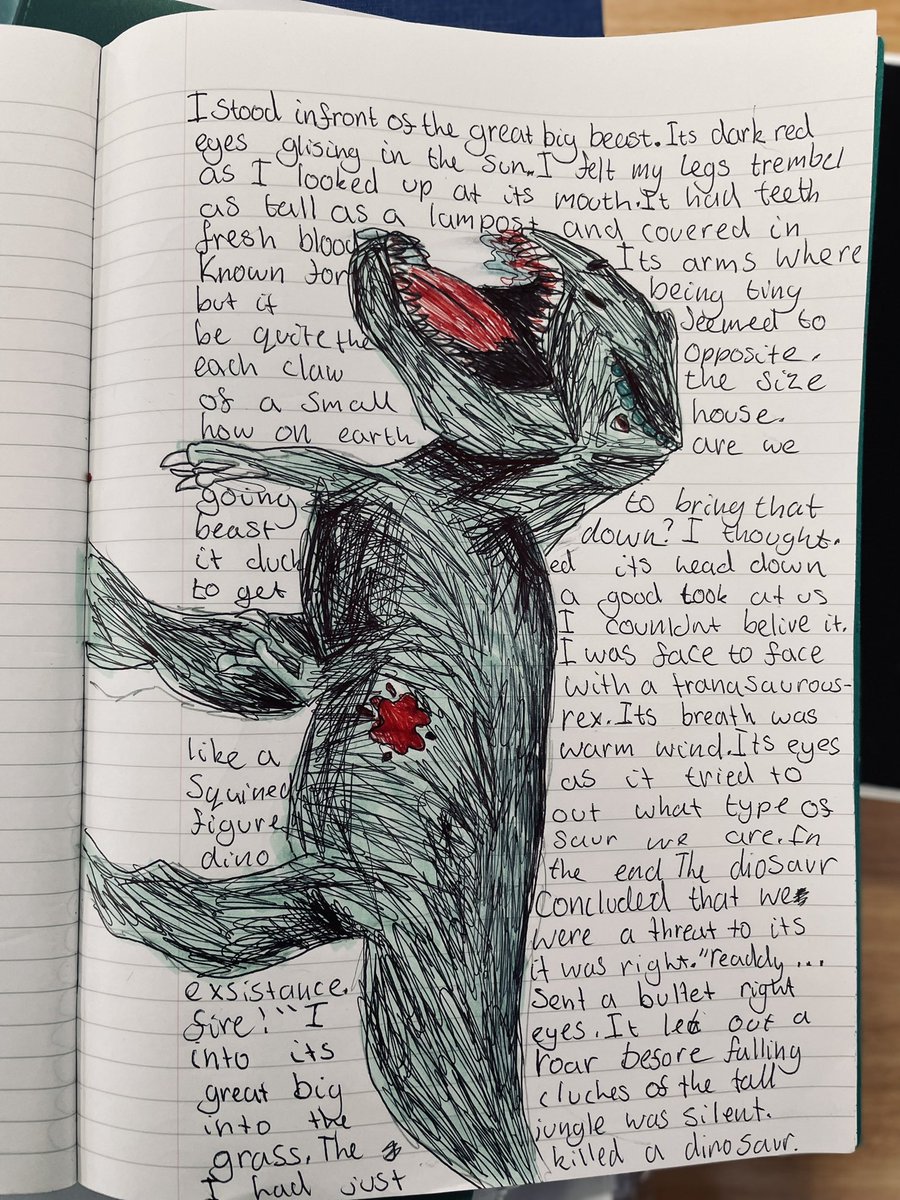 I stood infront of the great big beast. Its dark red
eyes glising in the sun. I felt my legs trembel
as I looked up at its mouth. It had teeth
as tall as a lampost and covered in
fresh blood Its arms where
known for being tiny
but it seemed to
be quite the opposite.
each claw the size
of a small house.
how on earth are we
going to bring that
beast down? I thought.
it ducked its head down
to get a good look at us
I couldnt belive it.
I was face to face
with a tranasaurous-
rex. Its breath was
like a warm wind. Its eyes
Squined as it tried to
figure out what type of
dino saur we are. In
the end The diosaur
Concluded that we
were a threat to its
exsistance. it was right. "readdy...
fire!" I sent a bullet right
into its eyes. It let out a
great big roar before falling
into the cluches of the tall
grass. The jungle was silent.
I had just killed a dinosaur.